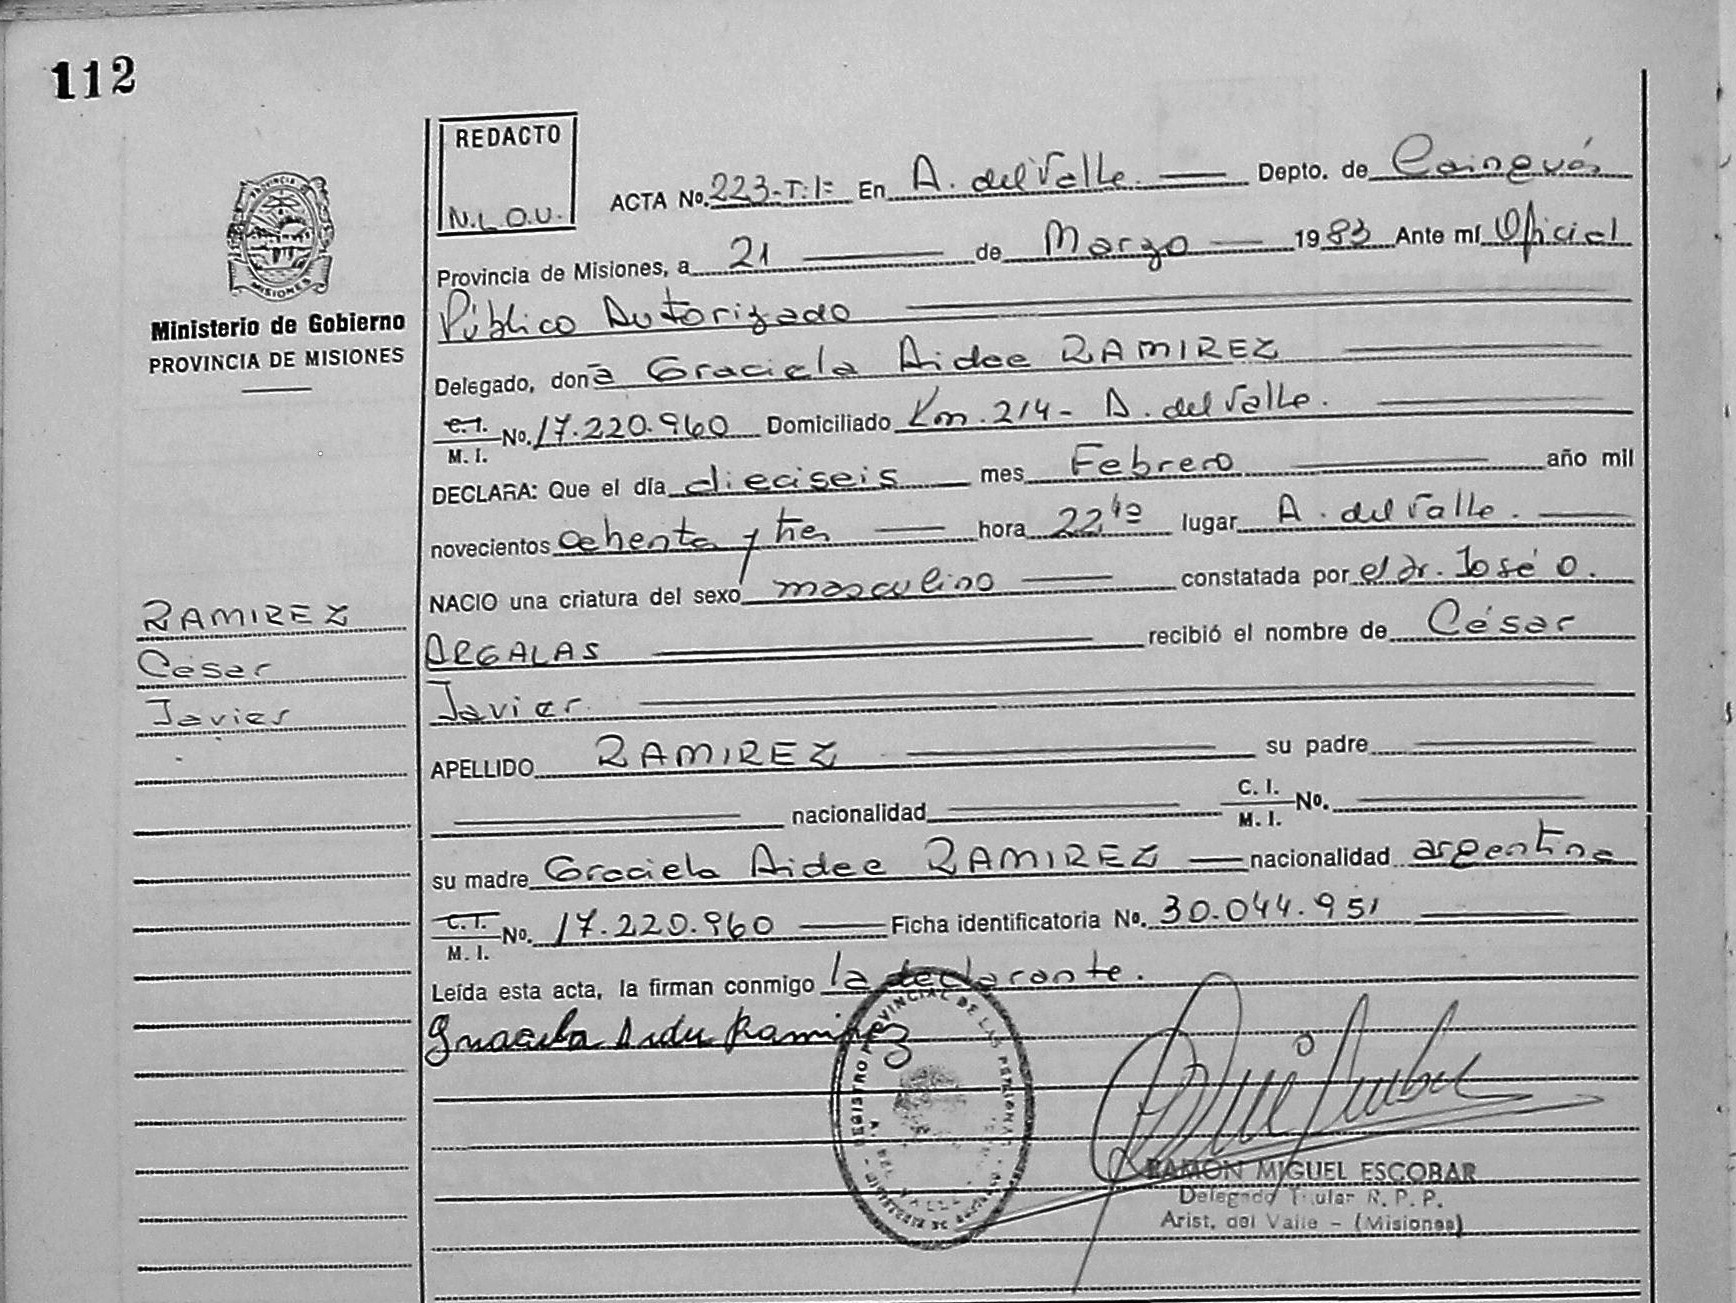 112
REDACTO
N.L.O.U.
ACTA No. 223-T:I= En A. del Valle. Depto. de Cainguás
Provincia de Misiones, a 21 de Marzo 1983 Ante mí Oficial
Público Autorizado
Delegado, doña Graciela Aidee RAMIREZ
C.I.
M. I. No. 17.220.960 Domiciliado Km. 214- A. del Valle.
DECLARA: Que el día dieciseis mes Febrero año mil
novecientos ochenta y tres hora 22,10 lugar A. del Valle.
NACIO una criatura del sexo masculino constatada por el dr. José O.
ARGALAS recibió el nombre de César
Javier.
APELLIDO RAMIREZ su padre
nacionalidad C. I.
M. I. No.
su madre Graciela Aidee RAMIREZ nacionalidad argentina
C.I.
M. I. No. 17.220.960 Ficha identificatoria No. 30.044.951
Leída esta acta, la firman conmigo la declarante.
Graciela Aidee Ramirez
PROVINCIA
MISIONES
Ministerio de Gobierno
PROVINCIA DE MISIONES
RAMIREZ
César
Javier
REGISTRO PROVINCIAL DE LAS PERSONAS
RAMÓN MIGUEL ESCOBAR
Delegado Titular R. P. P.
Arist. del Valle - (Misiones)